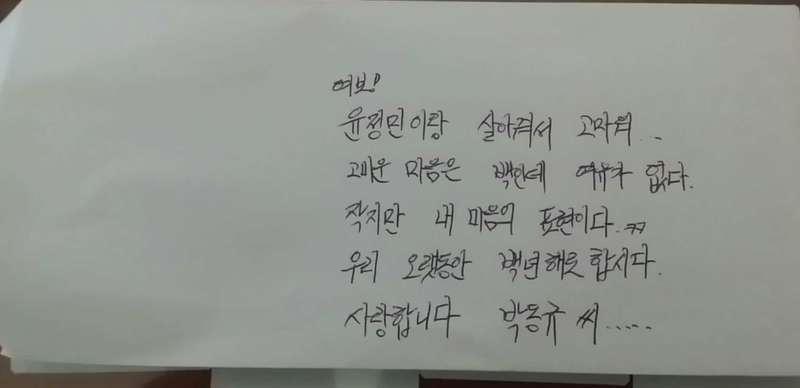 여보!
윤정민이랑 살아줘서 고마워...
고마운 마음은 백인데 여유가 없다.
작지만 내 마음의 표현이다.ㅋㅋ
우리 오랫동안 백년해로 합시다.
사랑합니다 박동규 씨.....